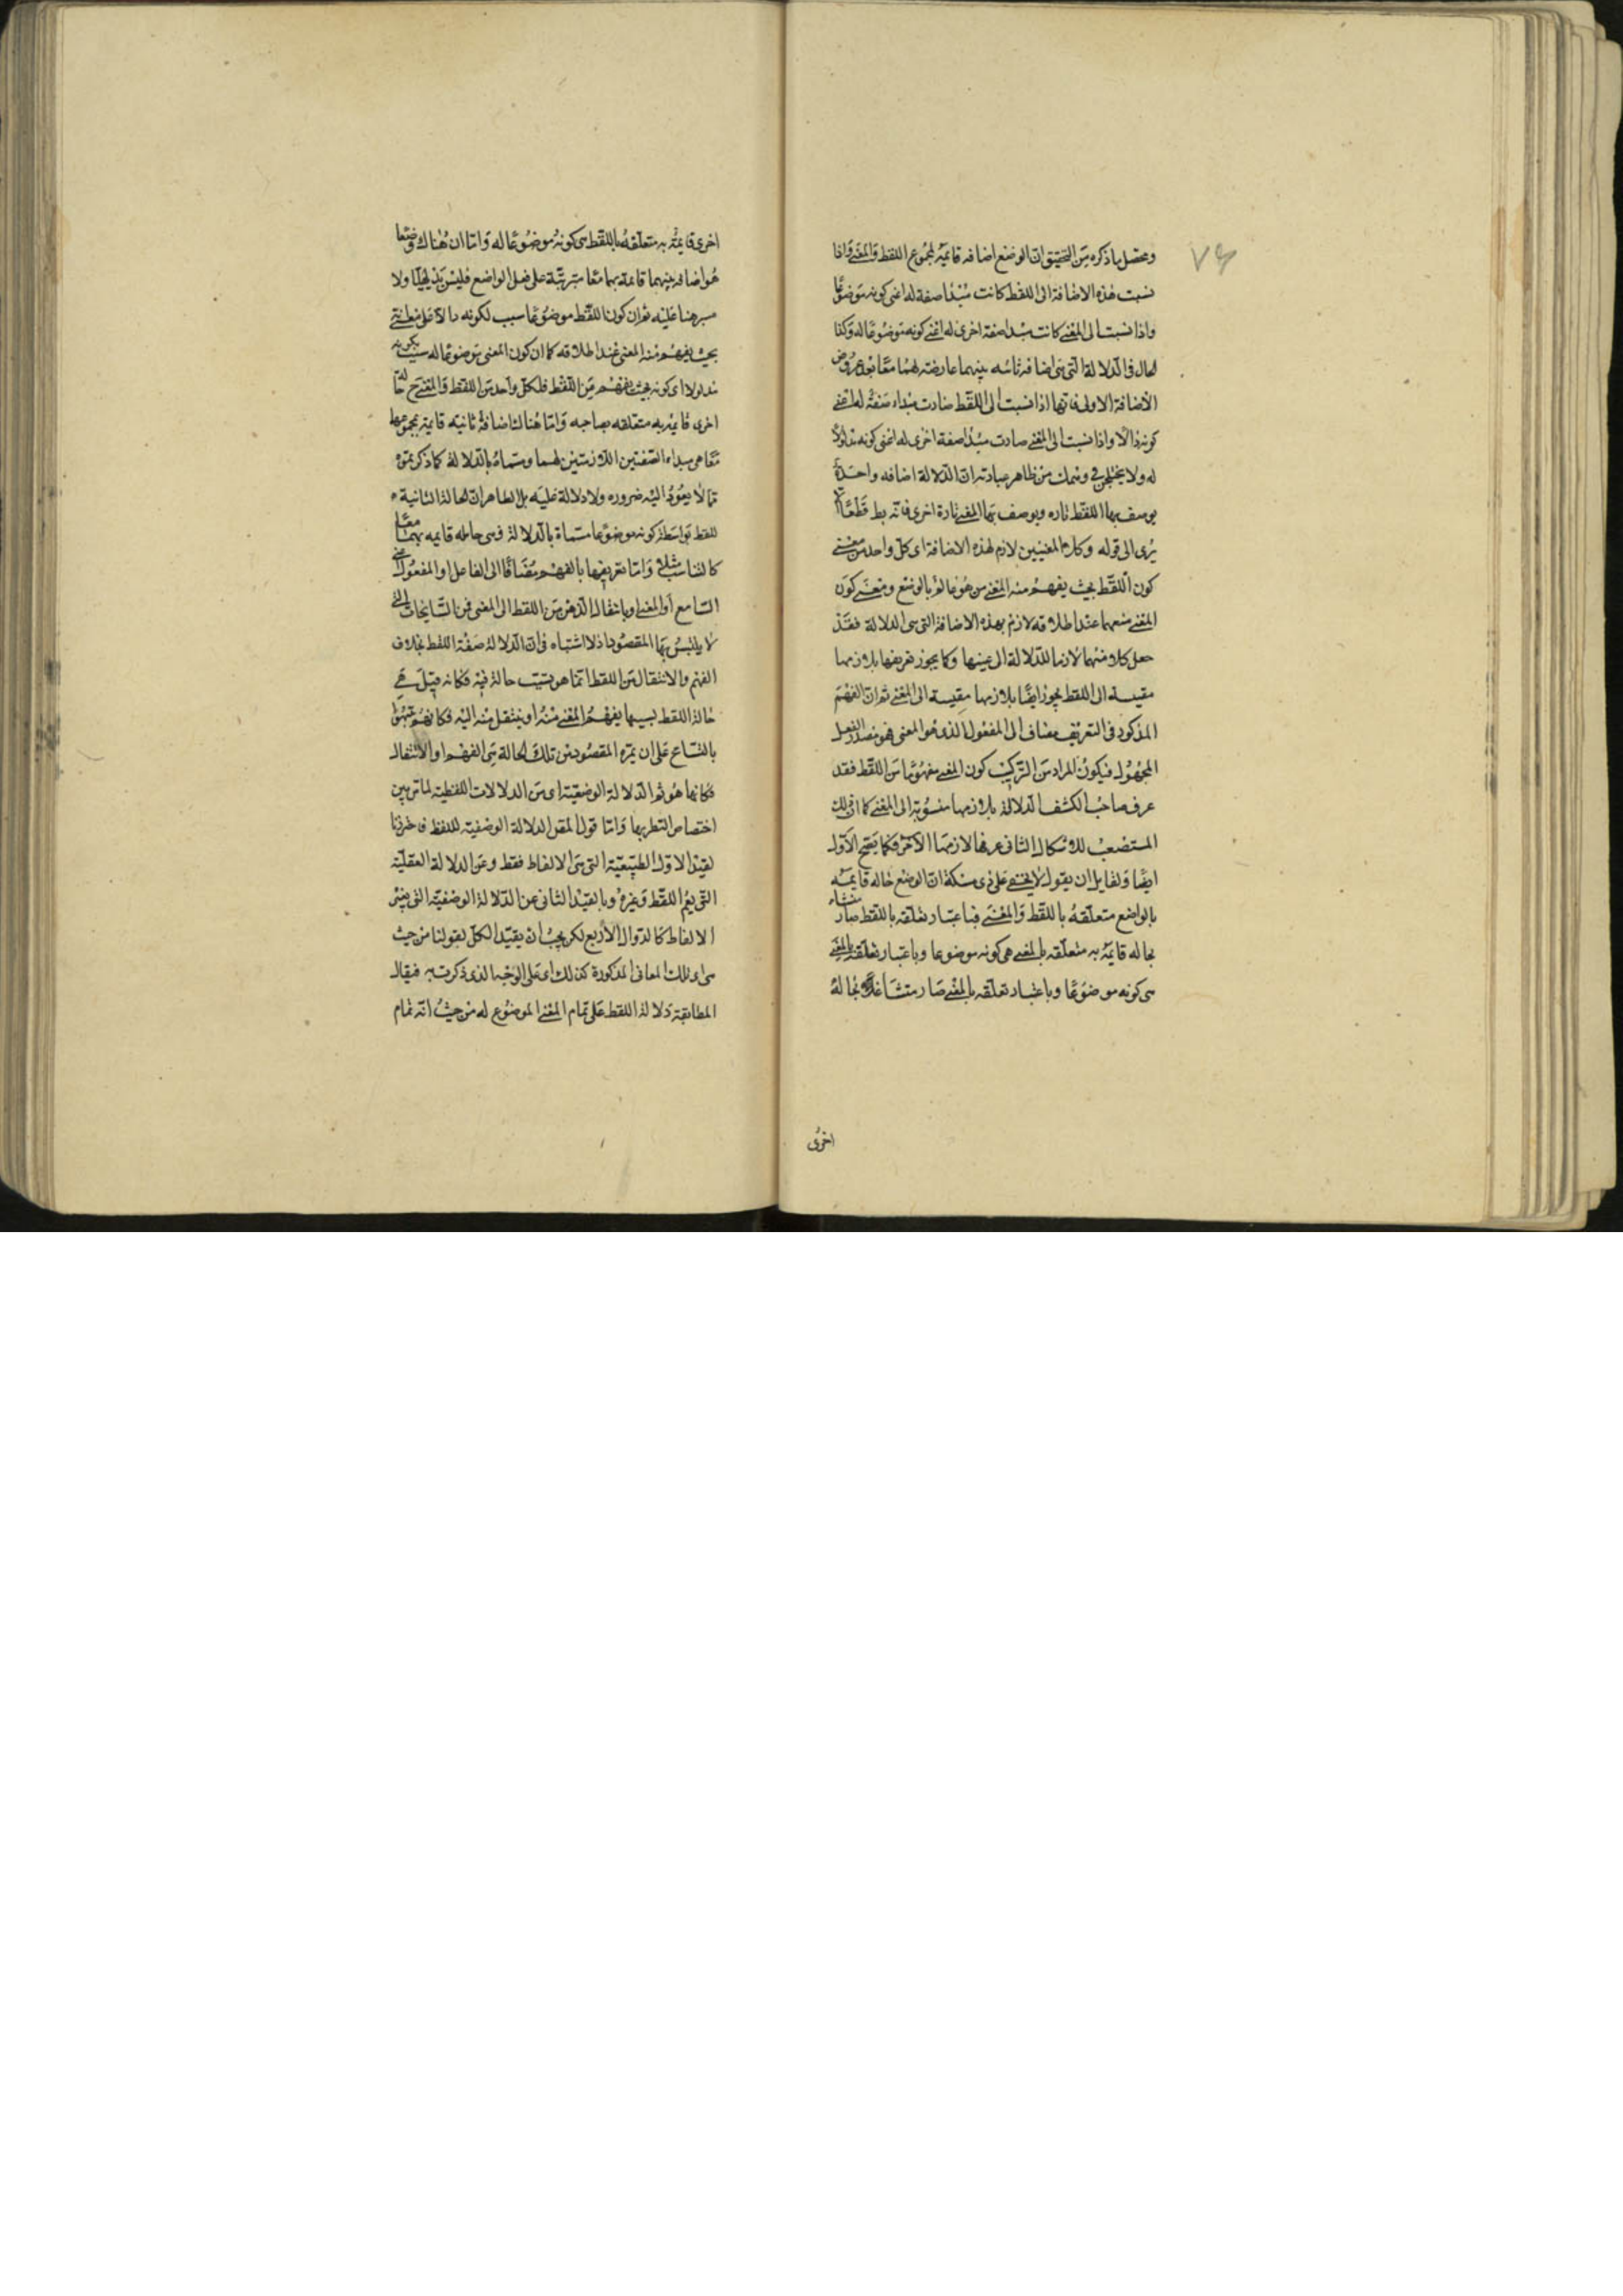 ٧٤
ومحصّل ما ذكره من التحقيق انّ الوضع اضافه قائمة لمجموع اللفظ والمعنى واذا
نسبت هذه الاضافة الى اللفظ كانت مبدا صفة له اعنى كونه موضوعًا
واذا نسبت الى المعنى كانت مبدا صفة اخرى له اعنى كونه موضوعًا له وكذا
الحال فى الدلالة التى هى اضافه ثانيه بينهما عارضة لهما معًا بعد عروض
الاضافة الاولى فانها اذا نسبت الى اللفظ صارت مبداء صفة له اعنى
كونه دالًا واذا نسبت الى المعنى صارت مبدا صفة اخرى له اعنى كونه مدلولًا
له ولا يختلجن فى وهمك من ظاهر عبارته ان الدلالة اضافه واحدة
يوصف بها اللفظ تاره ويوصف بها المعنى تارة اخرى فانه بط قطعًا الا
يُرى الى قوله وكلا المعنيين لازم لهذه الاضافة اى كل واحد من معنى
كون اللفظ بحيث يفهم منه المعنى من هو عالم بالوضع ومعنى كون
المعنى منفهما عند اطلاقه لازم بهذه الاضافة التى هى الدلالة فقد
جعل كلا منهما لازما للدلالة الى عينها وكما يجوز تعريفها بلازمها
مقيسة الى اللفظ يجوز ايضًا بلازمها مقيسة الى المعنى ثم ان الفهم
المذكور فى التعريف مضاف الى المفعول الذى هو المعنى فهو مصدر الفعل
المجهول فيكون المراد من التركيب كون المعنى مفهومًا من اللفظ فقد
عرف صاحب الكشف الدلالة بلازمها منسوبة الى المعنى كما ان ذلك
المستصعب للاشكال الثانى عرفها لازمها الآخر فكما يصح الاول
ايضًا ولقايل ان يقول لا يخفى على ذى مسكة ان الوضع حاله قايمة
بالواضع متعلقه باللفظ والمعنى فباعتبار تعلقه باللفظ صار منشاء
بحاله قايمة به متعلقه بالمعنى هى كونه موضوعا وباعتبار تعلقه بالمعنى
هى كونه موضوعًا وباعتبار تعلقه بالمعنى صار منشاء لحالة
اخرى
اخرى قايمة به متعلقه باللفظ هى كونه موضوعًا له واما ان هناك وضعا
هو اضافه بينهما قائمة بهما معًا مترتبة على فعل الواضع فليس بذلك جليًا ولا
مبرهنا عليه ثم ان كون اللفظ موضوعًا سبب لكونه دالا على معنى
بحيث يفهم منه المعنى عند اطلاقه كما ان كون المعنى موضوعا له سبب لكونه
مدلولا اى كونه بحيث يفهم من اللفظ فلكل واحد من اللفظ والمعنى ح حالة
اخرى قايمة به متعلقه بصاحبه واما هنالك اضافة ثانيه قايمة بمجموعهما
معًا هى مبداء الصفتين اللازمتين لهما ومسماة بالدلالة كما ذكرتموه
فما لا يعود اليه ضروره ولا دلالة عليه بل الظاهر ان الحالة الثانية
للفظ بواسطة كونه موضوعا مسماة بالدلالة وهى حاله قايمه بهما معا
كالتناسب مثلا واما تعريفها بالفهم مضافًا الى الفاعل او المفعول اعنى
السامع او المعنى او بانتقال الذهن من اللفظ الى المعنى فمن التسامحات التى
لا يلتبس بها المقصود اذ لا اشتباه فى ان الدلالة صفة اللفظ بخلاف
الفهم والانتقال من اللفظ انما هو بسبب حالة فيه فكانه قيل هى
حالة اللفظ بسببها يفهم المعنى منه او ينتقل منه اليه فكانهم نبهوا
بالتسامح على ان ثمرة المقصود من تلك الحالة هى الفهم او الانتقال
فكانها هو ثم الدلالة الوضعية اى من الدلالات اللفظية لما تبين
اختصاص النظر بها واما قول المقص الدلالة الوضعية للفظ فاحترزنا
لقيد الاول الطبيعية التى هى الالفاظ فقط وعن الدلالة العقلية
التى يعم اللفظ وغيره وبالقيد الثانى عن الدلالة الوضعية التى بغير
الالفاظ كالدوال الاربع لكن يجب ان يقيد الكل بقولنا من حيث
هى اى تلك المعانى المذكورة كذلك اى على الوجه الذى ذكرت به فيقال
المطابقة دلالة اللفظ على تمام المعنى الموضوع له من حيث انه تمام